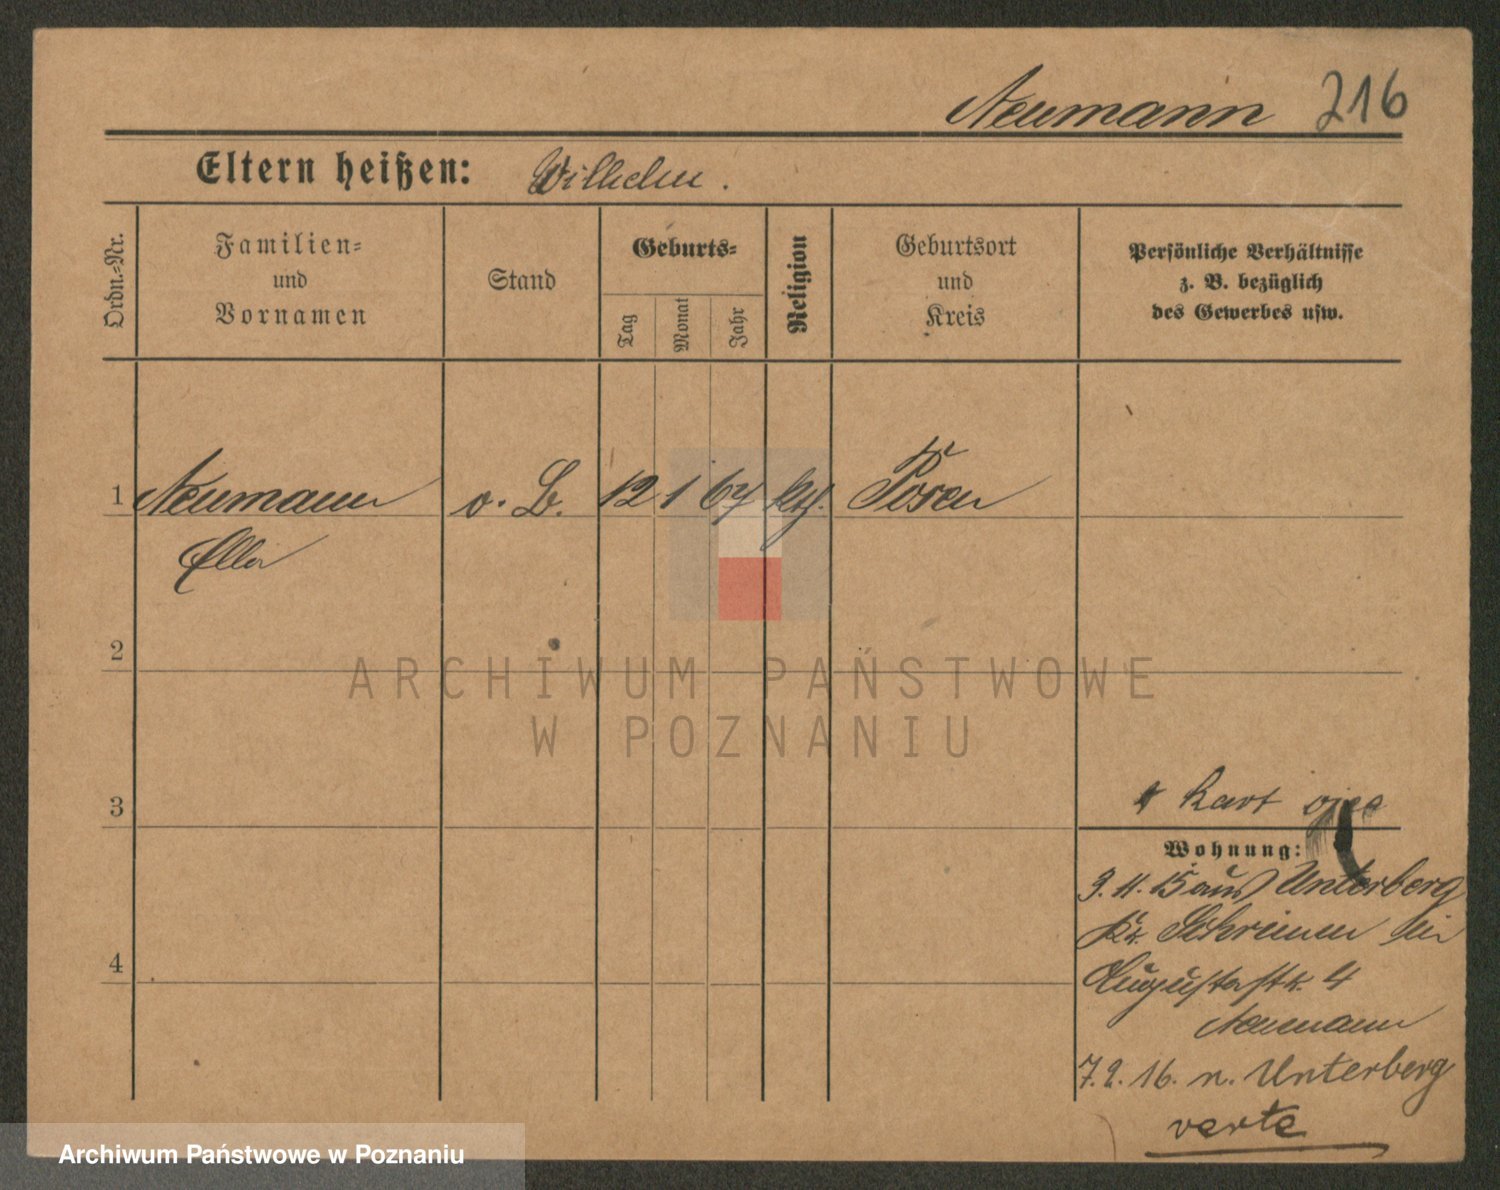 Neumann 216
Eltern heißen: Wilhelm.
Ordn.-Nr.
Familien-
und
Vornamen
Stand
Geburts-
Tag
Monat
Jahr
Religion
Geburtsort
und
Kreis
Persönliche Verhältnisse
z. B. bezüglich
des Gewerbes usw.
1 Neumann o. B. 12 1 67 Posen
Ella
2
3
4
Kart
Wohnung:
9. 11. 15 aus Unterberg
Kr. Schrimm
Augustastr. 4
Neumann
7. 2. 16. n. Unterberg
verte
ARCHIWUM PAŃSTWOWE
W POZNANIU
Archiwum Państwowe w Poznaniu